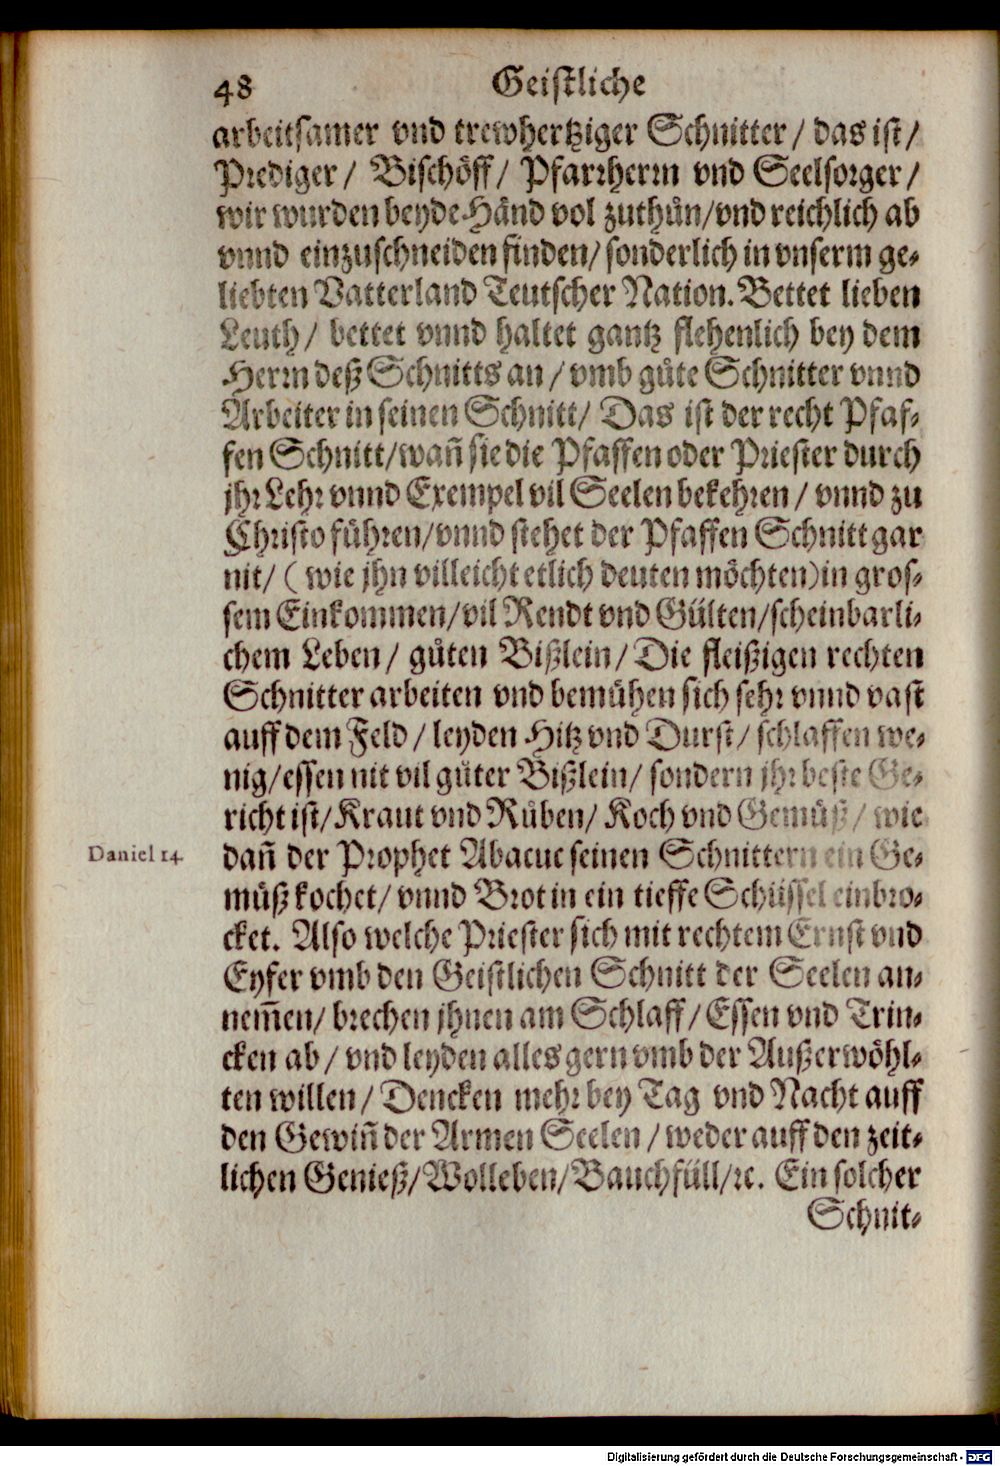 48 Geistliche
arbeitsamer vnd trewhertziger Schnitter / das ist /
Prediger / Bischöff / Pfarrherrn vnd Seelsorger /
wir wurden beyde Händ vol zuthůn / vnd reichlich ab
vnnd einzuschneiden finden / sonderlich in vnserm ge-
liebten Vatterland Teutscher Nation. Bettet lieben
Leuth / bettet vnnd haltet gantz flehenlich bey dem
Herrn deß Schnitts an / vmb gůte Schnitter vnnd
Arbeiter in seinen Schnitt / Das ist der recht Pfaf-
fen Schnitt / wañ sie die Pfaffen oder Priester durch
jhr Lehr vnnd Exempel vil Seelen bekehren / vnnd zu
Christo führen / vnnd stehet der Pfaffen Schnitt gar
nit / ( wie jhn villeicht etlich deuten möchten) in gros-
sem Einkommen / vil Rendt vnd Gülten / scheinbarli-
chem Leben / gůten Bißlein / Die fleißigen rechten
Schnitter arbeiten vnd bemühen sich sehr vnnd vast
auff dem Feld / leyden Hitz vnd Durst / schlaffen we-
nig / essen nit vil gůter Bißlein / sondern jhr beste Ge-
richt ist / Kraut vnd Rüben / Koch vnd Gemůß / wie
Daniel 14.
dañ der Prophet Abacuc seinen Schnittern ein Ge-
můß kochet / vnnd Brot in ein tieffe Schüssel einbro-
cket. Also welche Priester sich mit rechtem Ernst vnd
Eyfer vmb den Geistlichen Schnitt der Seelen an-
nem̃en / brechen jhnen am Schlaff / Essen vnd Trin-
cken ab / vnd leyden alles gern vmb der Außerwöhl-
ten willen / Dencken mehr bey Tag vnd Nacht auff
den Gewiñ der Armen Seelen / weder auff den zeit-
lichen Genieß / Wolleben / Bauchfüll / ꝛc. Ein solcher
Schnit-
Digitalisierung gefördert durch die Deutsche Forschungsgemeinschaft - DFG